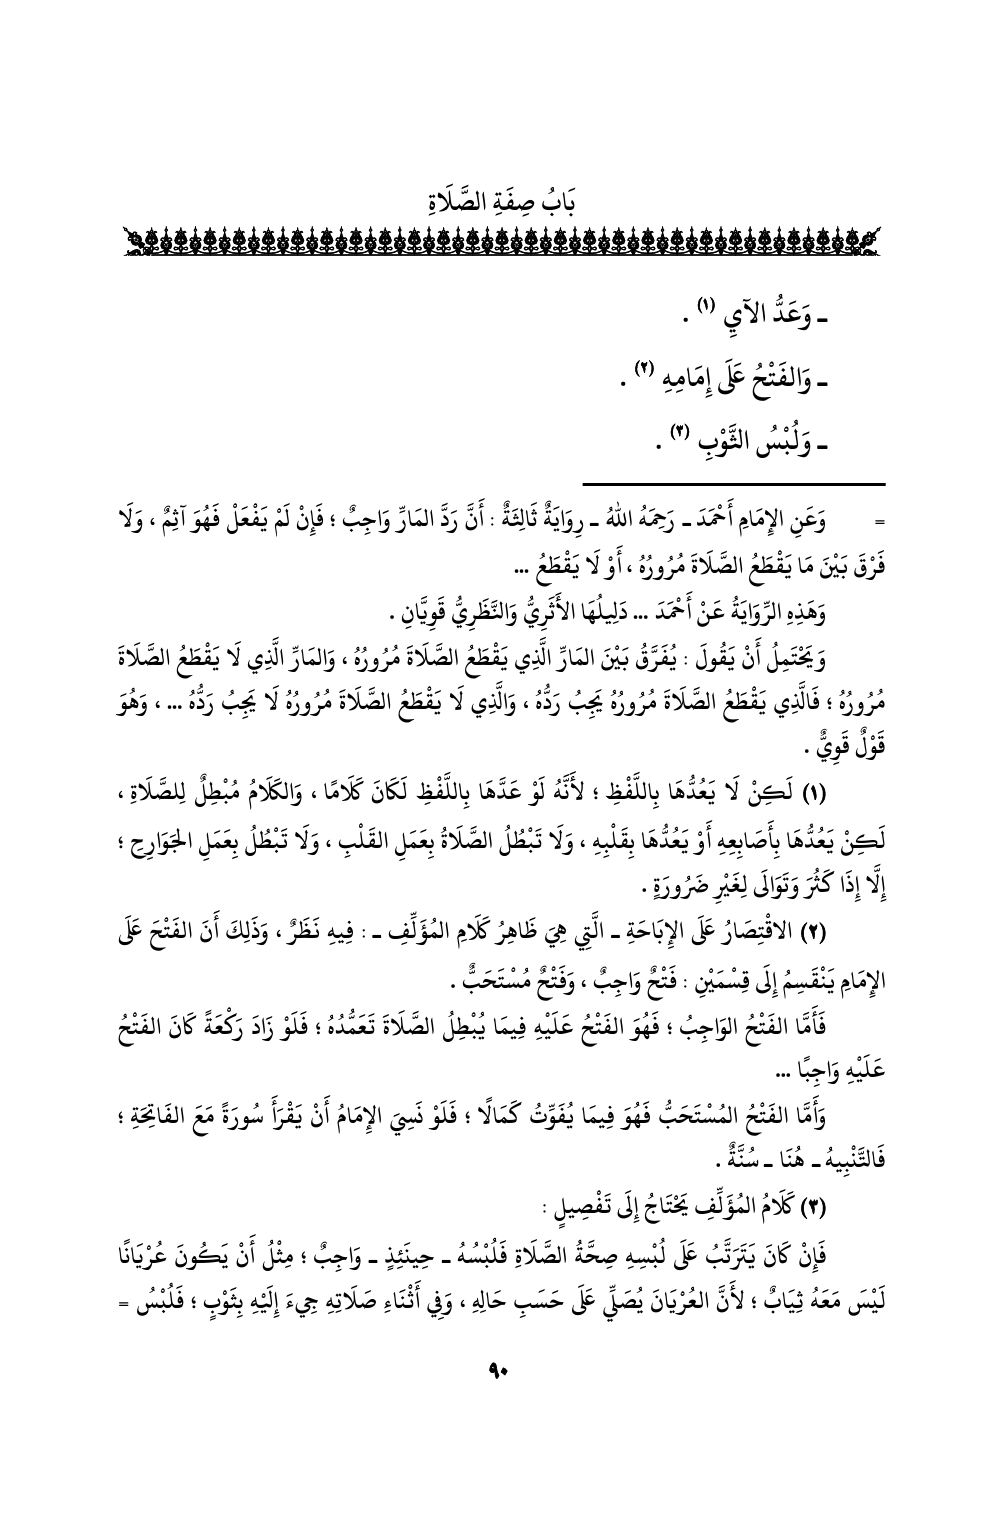 بَابُ صِفَةِ الصَّلَاةِ
ـ وَعَدُّ الآيِ (١) .
ـ وَالفَتْحُ عَلَى إِمَامِهِ (٢) .
ـ وَلُبْسُ الثَّوْبِ (٣) .
= وَعَنِ الإِمَامِ أَحْمَدَ ـ رَحِمَهُ اللهُ ـ رِوَايَةٌ ثَالِثَةٌ : أَنَّ رَدَّ المَارِّ وَاجِبٌ ؛ فَإِنْ لَمْ يَفْعَلْ فَهُوَ آثِمٌ ، وَلَا
فَرْقَ بَيْنَ مَا يَقْطَعُ الصَّلَاةَ مُرُورُهُ ، أَوْ لَا يَقْطَعُ ...
وَهَذِهِ الرِّوَايَةُ عَنْ أَحْمَدَ ... دَلِيلُهَا الأَثَرِيُّ وَالنَّظَرِيُّ قَوِيَّانِ .
وَيَحْتَمِلُ أَنْ يَقُولَ : يُفَرَّقُ بَيْنَ المَارِّ الَّذِي يَقْطَعُ الصَّلَاةَ مُرُورُهُ ، وَالمَارِّ الَّذِي لَا يَقْطَعُ الصَّلَاةَ
مُرُورُهُ ؛ فَالَّذِي يَقْطَعُ الصَّلَاةَ مُرُورُهُ يَجِبُ رَدُّهُ ، وَالَّذِي لَا يَقْطَعُ الصَّلَاةَ مُرُورُهُ لَا يَجِبُ رَدُّهُ ... ، وَهُوَ
قَوْلٌ قَوِيٌّ .
(١) لَكِنْ لَا يَعُدُّهَا بِاللَّفْظِ ؛ لأَنَّهُ لَوْ عَدَّهَا بِاللَّفْظِ لَكَانَ كَلَامًا ، وَالكَلَامُ مُبْطِلٌ لِلصَّلَاةِ ،
لَكِنْ يَعُدُّهَا بِأَصَابِعِهِ أَوْ يَعُدُّهَا بِقَلْبِهِ ، وَلَا تَبْطُلُ الصَّلَاةُ بِعَمَلِ القَلْبِ ، وَلَا تَبْطُلُ بِعَمَلِ الجَوَارِحِ ؛
إِلَّا إِذَا كَثُرَ وَتَوَالَى لِغَيْرِ ضَرُورَةٍ .
(٢) الاقْتِصَارُ عَلَى الإِبَاحَةِ ـ الَّتِي هِيَ ظَاهِرُ كَلَامِ المُؤَلِّفِ ـ : فِيهِ نَظَرٌ ، وَذَلِكَ أَنَ الفَتْحَ عَلَى
الإِمَامِ يَنْقَسِمُ إِلَى قِسْمَيْنِ : فَتْحٌ وَاجِبٌ ، وَفَتْحٌ مُسْتَحَبٌّ .
فَأَمَّا الفَتْحُ الوَاجِبُ ؛ فَهُوَ الفَتْحُ عَلَيْهِ فِيمَا يُبْطِلُ الصَّلَاةَ تَعَمُّدُهُ ؛ فَلَوْ زَادَ رَكْعَةً كَانَ الفَتْحُ
عَلَيْهِ وَاجِبًا ...
وَأَمَّا الفَتْحُ المُسْتَحَبُّ فَهُوَ فِيمَا يُفَوِّتُ كَمَالًا ؛ فَلَوْ نَسِيَ الإِمَامُ أَنْ يَقْرَأَ سُورَةً مَعَ الفَاتِحَةِ ؛
فَالتَّنْبِيهُ ـ هُنَا ـ سُنَّةٌ .
(٣) كَلَامُ المُؤَلِّفِ يَحْتَاجُ إِلَى تَفْصِيلٍ :
فَإِنْ كَانَ يَتَرَتَّبُ عَلَى لُبْسِهِ صِحَّةُ الصَّلَاةِ فَلُبْسُهُ ـ حِينَئِذٍ ـ وَاجِبٌ ؛ مِثْلُ أَنْ يَكُونَ عُرْيَانًا
لَيْسَ مَعَهُ ثِيَابٌ ؛ لأَنَّ العُرْيَانَ يُصَلِّي عَلَى حَسَبِ حَالِهِ ، وَفِي أَثْنَاءِ صَلَاتِهِ جِيءَ إِلَيْهِ بِثَوْبٍ ؛ فَلُبْسُ =
٩٠